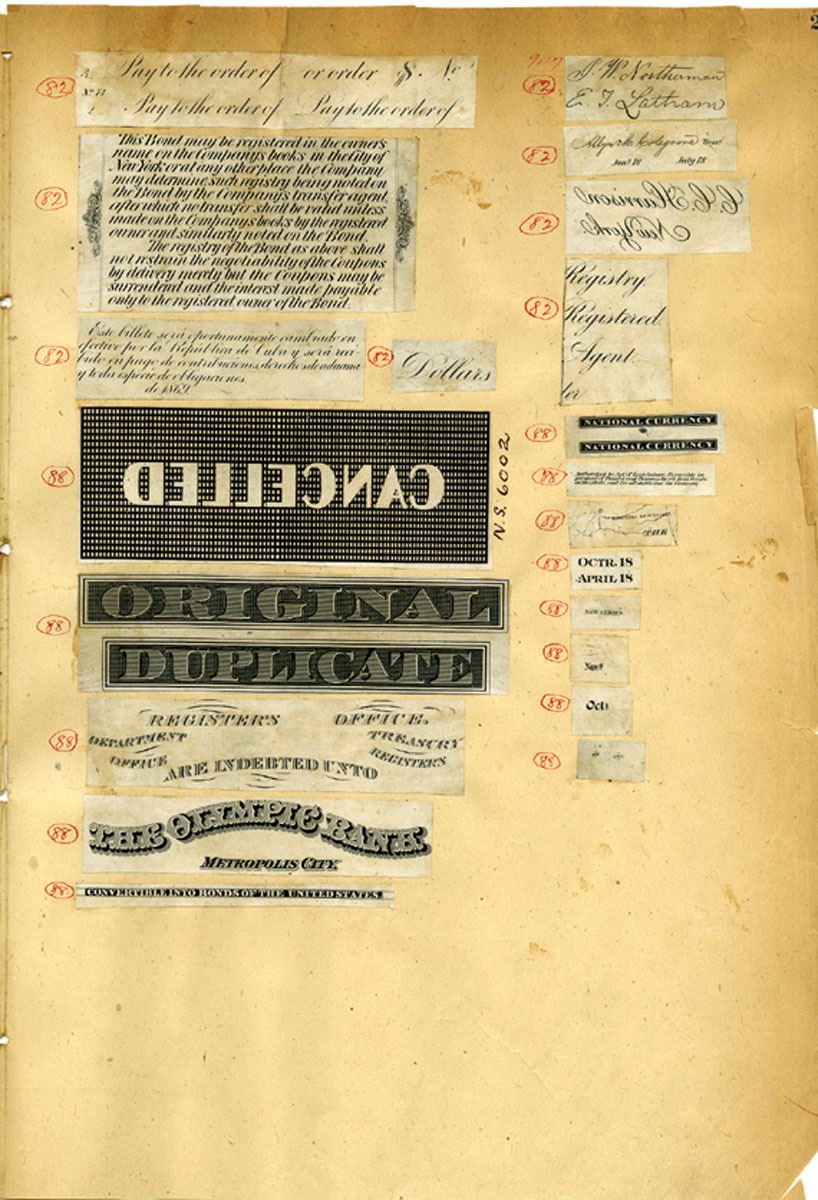 2
82
3. Pay to the order of or order $. No
No. 71
2 Pay to the order of Pay to the order of
82
This Bond may be registered in the owner's
name on the Company's books in the City of
New York or at any other place the Company
may determine, Such registry being noted on
the Bond by the Company's transfer agent,
after which no transfer shall be valid unless
made on the Company's books by the registered
owner and similarly noted on the Bond.
The registry of the Bond as above shall
not restrain the negotiability of the Coupons
by delivery merely but the Coupons may be
surrendered and the interest made payable
only to the registered owner of the Bond.
82
Este billete será oportunamente cambiado en
efectivo por la República de Cuba y será reci-
bido en pago de contribuciones, derechos de aduana
y toda especie de obligaciones
de 1869.
82
Dollars
88
CANCELLED
N.S. 6002
88
ORIGINAL
DUPLICATE
88
REGISTER'S OFFICE.
DEPARTMENT TREASURY
OFFICE REGISTER'S
ARE INDEBTED UNTO
88
THE OLYMPIC BANK
METROPOLIS CITY.
88
CONVERTIBLE INTO BONDS OF THE UNITED STATES.
82
J. W. Northerman
E. T. Latham
82
Jan'y 18 July 18
82
C. C. Harrison
New York.
82
Registry.
Registered.
Agent.
88
NATIONAL CURRENCY
NATIONAL CURRENCY
88
88
88
OCTR. 18
APRIL 18
88
NEW SERIES
88
Novr
88
Octr
88